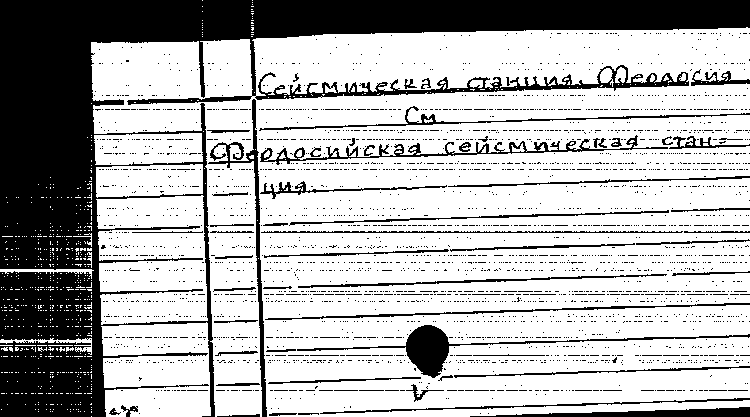 Сейсмическая станция. Феодосия
См.
Феодосийская сейсмическая стан=
ция.